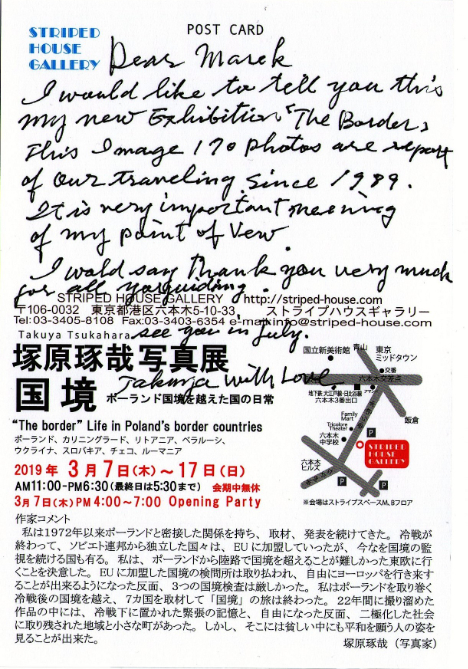 STRIPED
HOUSE
GALLERY
POST CARD
Dear Marek
I would like to tell you this
my new Exhibition "The Border,
This Image 170 photos are report
of our traveling since 1989.
It is very important meaning
of my point of Vew.
I wold say thank you very much
for all yor guiding.
STRIPED HOUSE GALLERY http://striped-house.com
〒106-0032 東京都港区六本木5-10-33 ストライプハウスギャラリー
Tel:03-3405-8108 Fax:03-3403-6354 e-mail:info@striped-house.com
see you in July.
Takuya with Love
Takuya Tsukahara
塚原琢哉写真展
国境 ポーランド国境を越えた国の日常
"The border" Life in Poland's border countries
ポーランド、カリーニングラード、リトアニア、ベラルーシ、
ウクライナ、スロバキア、チェコ、ルーマニア
2019年 3月7日(木)〜17日(日)
AM11:00-PM6:30(最終日は5:30まで) 会期中無休
3月7日(木)PM4:00〜7:00 Opening Party
国立新美術館
青山
東京
ミッドタウン
交番
六本木交差点
地下鉄・大江戸線・日比谷線
六本木3番出口
Family
Mart
Tricolore
Theater
六本木
中学校
飯倉
六本木
ヒルズ
P
P
P
STRIPED
HOUSE
GALLERY
※会場はストライプスペースM、Bフロア
作家コメント
私は1972年以来ポーランドと密接した関係を持ち、取材、発表を続けてきた。冷戦が
終わって、ソビエト連邦から独立した国々は、EUに加盟していったが、今なを国境の監
視を続ける国も有る。私は、ポーランドから陸路で国境を超えることが難しかった東欧に行
くことを決意した。EUに加盟した国境の検問所は取り払われ、自由にヨーロッパを行き来す
ることが出来るようになった反面、3つの国境検査は厳しかった。私はポーランドを取り巻く
冷戦後の国境を越え、7カ国を取材して「国境」の旅は終わった。22年間に撮り溜めた
作品の中には、冷戦下に置かれた緊張の記憶と、自由になった反面、二極化した社会
に取り残された地域と小さな町があった。しかし、そこには貧しい中にも平和を願う人の姿を
見ることが出来た。
塚原琢哉（写真家）